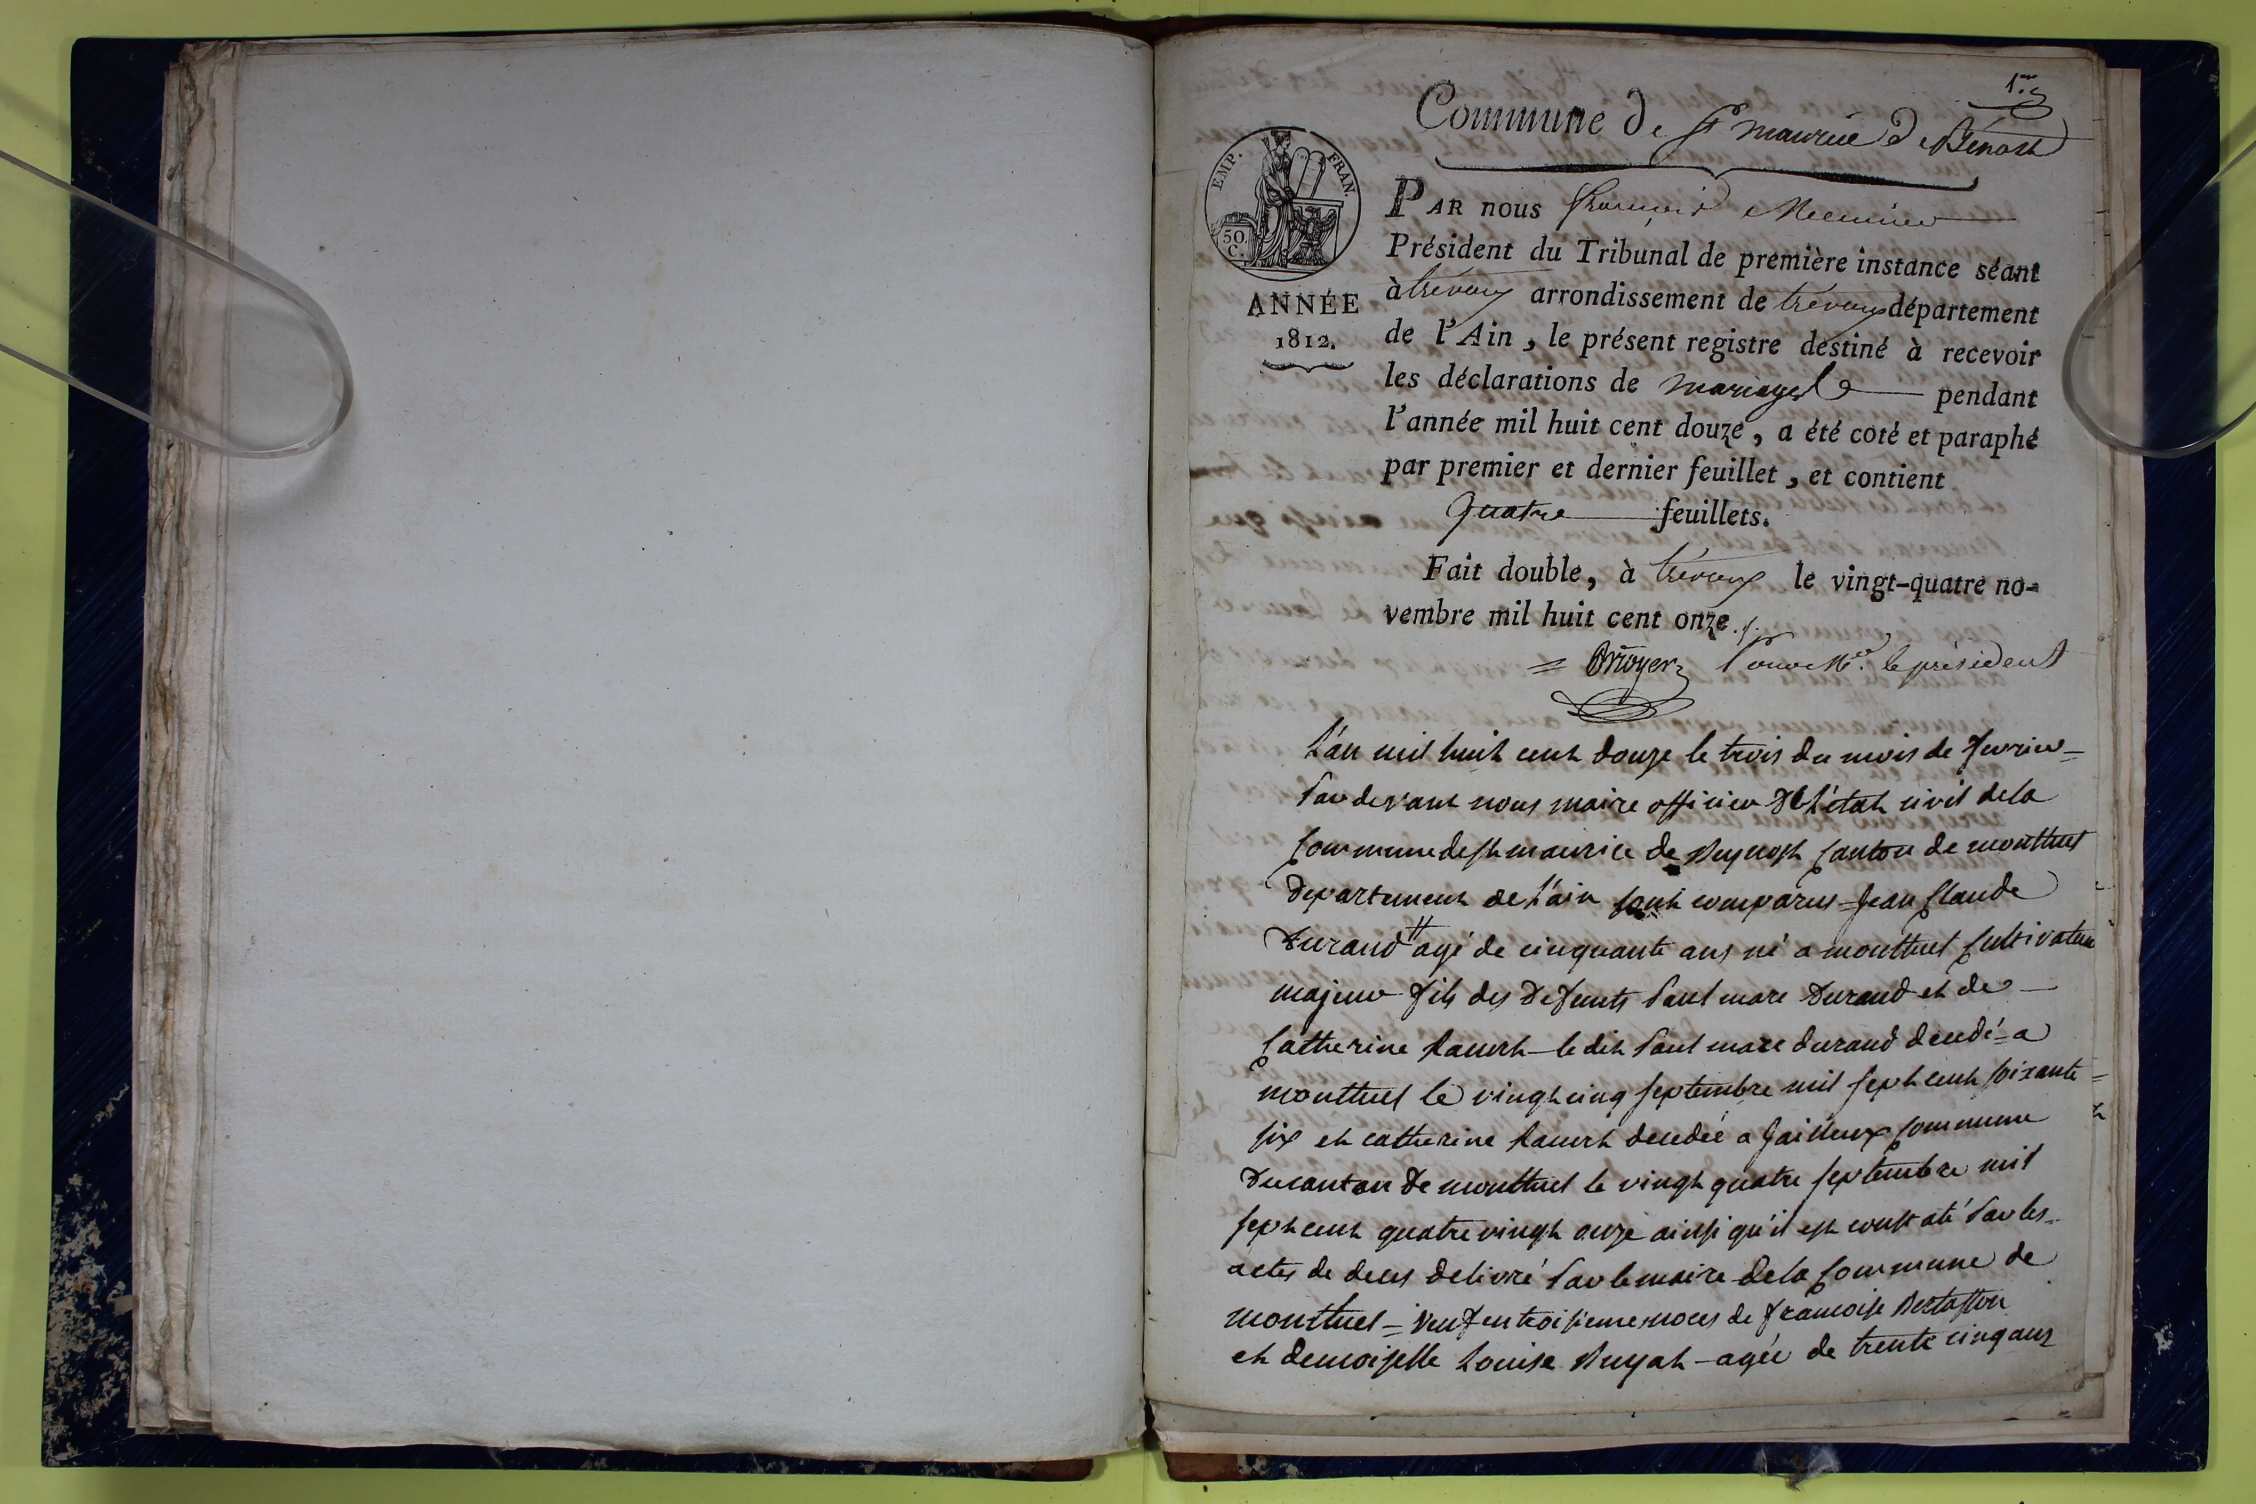 1er
Commune de St maurice de Bênost
EMP. FRAN.
50.
C.
ANNÉE
1812.
PAR nous françois
Président du Tribunal de première instance séant
à trévoux arrondissement de trévoux département
de l'Ain, le présent registre destiné à recevoir
les déclarations de mariages pendant
l'année mil huit cent douze, a été coté et paraphé
par premier et dernier feuillet, et contient
quatre feuillets.
Fait double, à trévoux le vingt-quatre no-
vembre mil huit cent onze ./.
= Bruyer Pour Mr. le président
L'an mil huit cent douze le trois du mois de fevrier =
Par devant nous maire officier de l'état civil dela
Commune de st maurice de Beynost Canton de montluel
departement de l'ain sont comparus = Jean Claude
Durand # agé de cinquante ans né a montluel Cultivateur
majeur fils des defunts Paul marc Durand et de
Catherine - le dit Paul marc durand decedé = a
montluel le vingt cinq septembre mil sept cent soixante =
six et catherine decedée a Jailleux commune
du canton de montluel le vingt quatre septembre mil
sept cent quatre vingt onze ainsi qu'il est constaté Par les =
actes de deces delivré Par le maire dela Commune de
montluel = Veuf en troisieme noces de francoise
et demoiselle Louise Buyat - agée de trente cinq ans